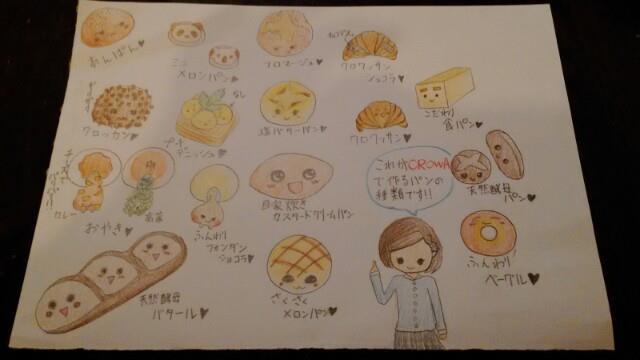 あんぱん♥
ミニ
メロンパン♥
フロマージュ♥
クロワッサン
ショコラ♥
こだわり
食パン♥
クロッカン♥
なし
デニッシュ♥
塩バターパン♥
クロワッサン♥
これがCROWA
で作るパンの
種類です!!
天然酵母
パン♥
カレー
高菜
おやき♥
ふんわり
フォンダン
ショコラ♥
自家炊き
カスタードクリームパン
天然酵母
バタール♥
さくさく
メロンパン♥
ふんわり
ベーグル♥